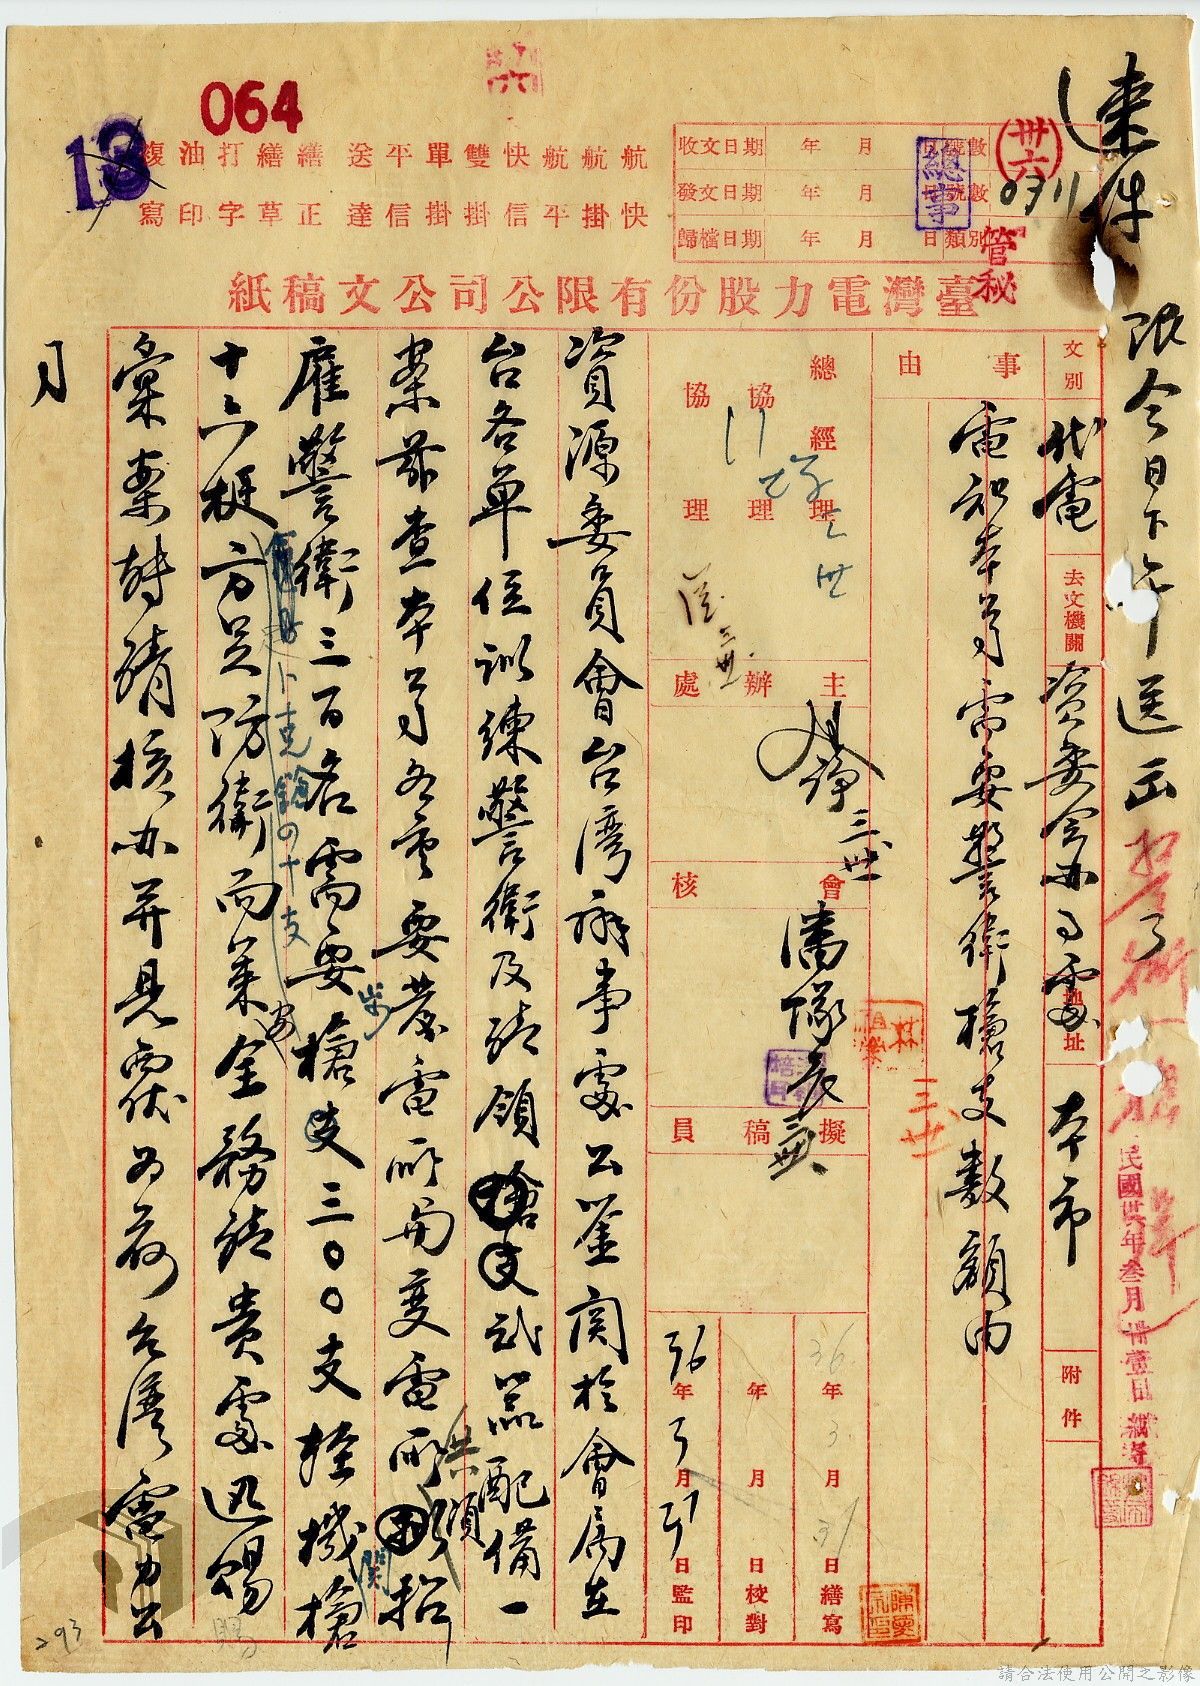 速件 限今日下午送出
民國卅六年叁月卅壹日繕寫
收文日期 年 月 日 號數
發文日期 年 月 日 號數
歸檔日期 年 月 日 類別
卅六
0711
管秘
總事
航快
航掛
航平
快信
雙掛
單掛
平信
送達
繕正
繕草
打字
油印
複寫
064
13
臺灣電力股份有限公司文稿紙
文別 代電 去文機關 資委會办事處 地址 本市 附件
事由
電知本公司需要警衛槍支數額由
總經理
協理
協理
主辦處
會核
潘隊長
擬稿員
36年3月31日繕寫
年 月 日校對
36年3月31日監印
資源委員會台灣辦事處公鑒関於會属在
台各单位訓練警衛及請領武器配備一
案茲查本公司各重要發電所与變電所須招
雇警衛三百名需要步槍三〇〇支輕機関槍
十六挺卜克鎗四十支
方足防衛而策安全務請貴處迅賜
彙案轉請核办并見覆为荷台灣電力公
司
293
請合法使用公開之影像